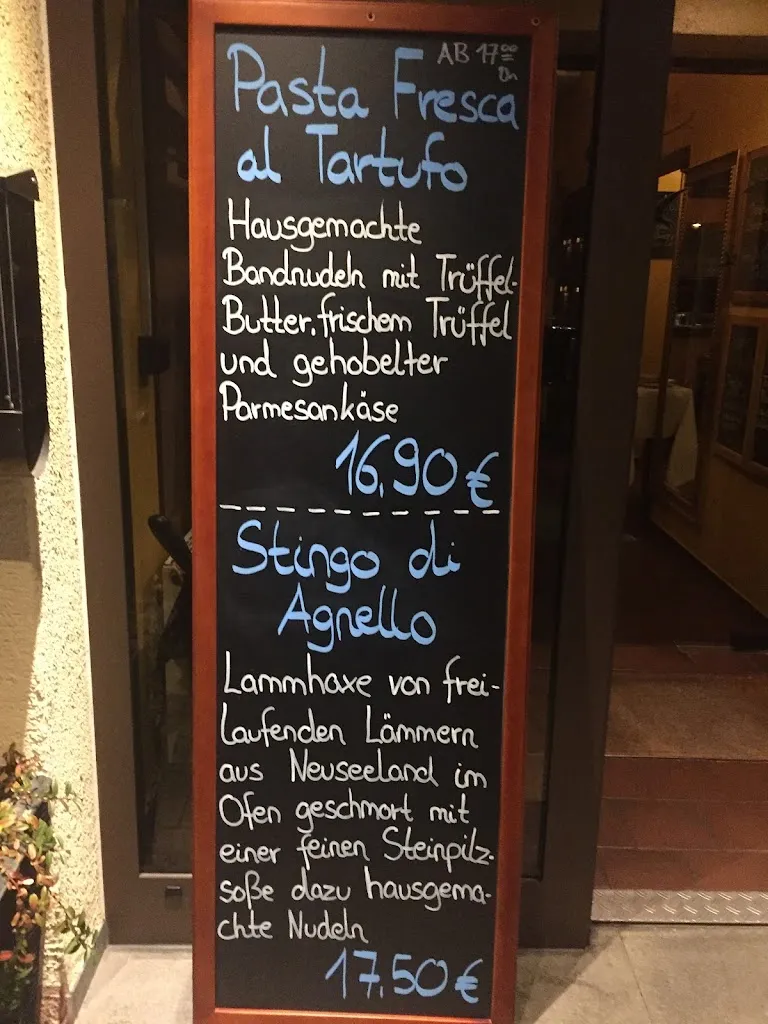 AB 17⁰⁰
Pasta Fresca
al Tartufo
Hausgemachte
Bandnudeln mit Trüffel-
Butter, frischem Trüffel
und gehobelter
Parmesankäse
16,90 €
Stingo di
Agnello
Lammhaxe von frei-
laufenden Lämmern
aus Neuseeland im
Ofen geschmort mit
einer feinen Steinpilz-
soße dazu hausgema-
chte Nudeln
17,50 €